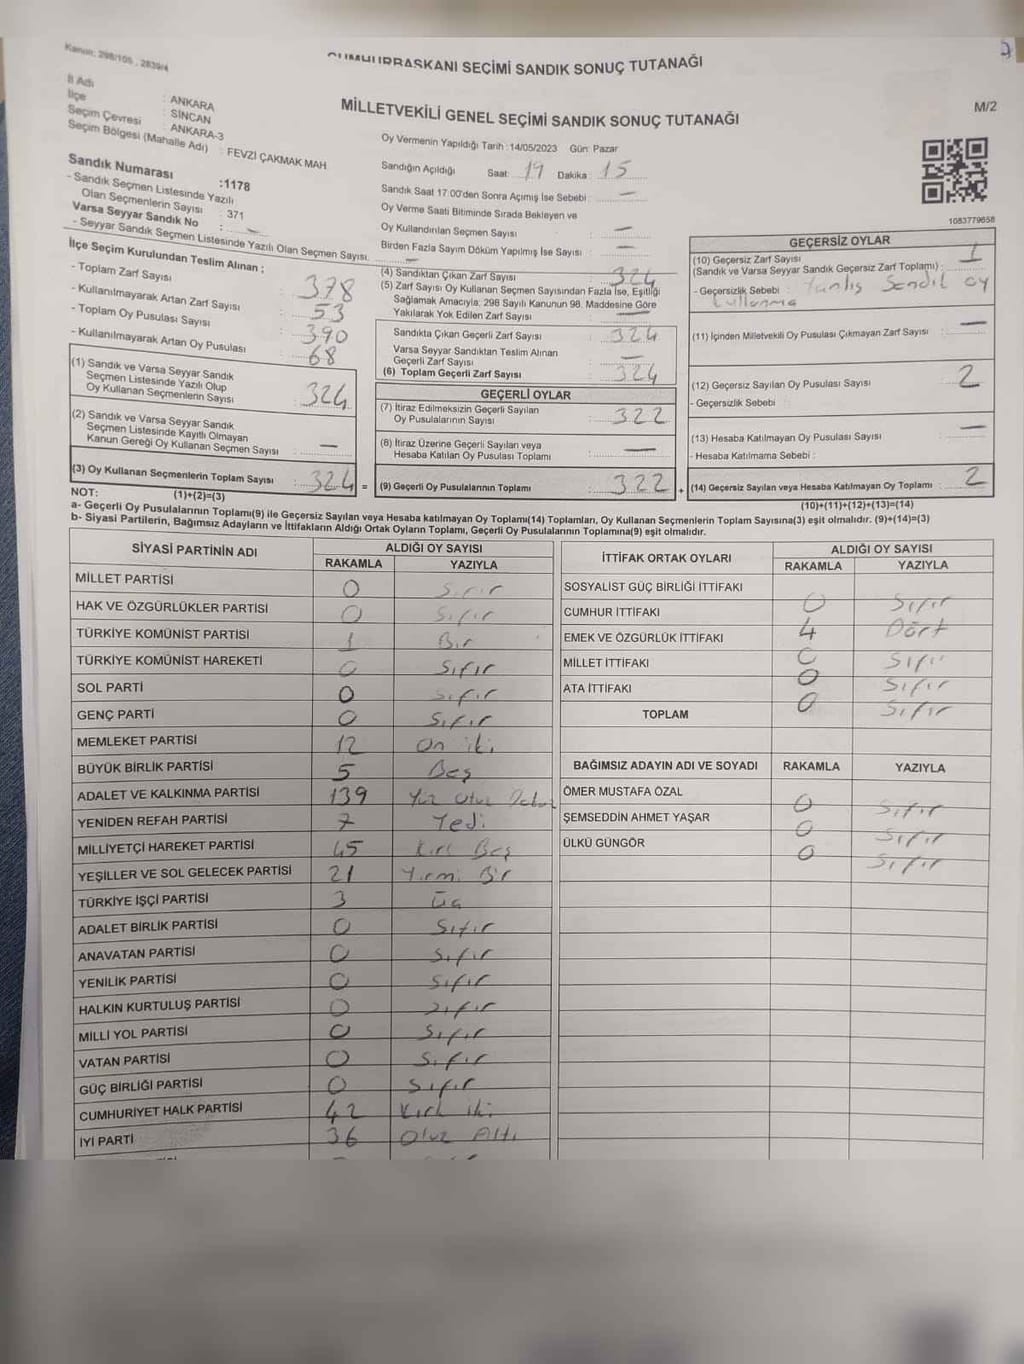 Kanun: 298/105 , 2839/4
CUMHURBAŞKANI SEÇİMİ SANDIK SONUÇ TUTANAĞI
MİLLETVEKİLİ GENEL SEÇİMİ SANDIK SONUÇ TUTANAĞI
M/2
İl Adı : ANKARA
İlçe : SİNCAN
Seçim Çevresi : ANKARA-3
Seçim Bölgesi (Mahalle Adı) : FEVZİ ÇAKMAK MAH
Sandık Numarası :1178
- Sandık Seçmen Listesinde Yazılı
Olan Seçmenlerin Sayısı : 371
Varsa Seyyar Sandık No : —
- Seyyar Sandık Seçmen Listesinde Yazılı Olan Seçmen Sayısı. —
İlçe Seçim Kurulundan Teslim Alınan ;
- Toplam Zarf Sayısı : 378
- Kullanılmayarak Artan Zarf Sayısı : 53
- Toplam Oy Pusulası Sayısı : 390
- Kullanılmayarak Artan Oy Pusulası : 68
(1) Sandık ve Varsa Seyyar Sandık
Seçmen Listesinde Yazılı Olup
Oy Kullanan Seçmenlerin Sayısı : 324
(2) Sandık ve Varsa Seyyar Sandık
Seçmen Listesinde Kayıtlı Olmayan
Kanun Gereği Oy Kullanan Seçmen Sayısı : —
(3) Oy Kullanan Seçmenlerin Toplam Sayısı : 324 =
Oy Vermenin Yapıldığı Tarih :14/05/2023 Gün: Pazar
Sandığın Açıldığı Saat: 19 Dakika : 15
Sandık Saat 17.00'den Sonra Açımış İse Sebebi : —
Oy Verme Saati Bitiminde Sırada Bekleyen ve
Oy Kullandırılan Seçmen Sayısı : —
Birden Fazla Sayım Döküm Yapılmış İse Sayısı : —
(4) Sandıktan Çıkan Zarf Sayısı : 324
(5) Zarf Sayısı Oy Kullanan Seçmen Sayısından Fazla İse, Eşitliği
Sağlamak Amacıyla; 298 Sayılı Kanunun 98. Maddesine Göre
Yakılarak Yok Edilen Zarf Sayısı : —
Sandıkta Çıkan Geçerli Zarf Sayısı : 324
Varsa Seyyar Sandıktan Teslim Alınan
Geçerli Zarf Sayısı : —
(6) Toplam Geçerli Zarf Sayısı : 324
GEÇERLİ OYLAR
(7) İtiraz Edilmeksizin Geçerli Sayılan
Oy Pusulalarının Sayısı : 322
(8) İtiraz Üzerine Geçerli Sayılan veya
Hesaba Katılan Oy Pusulası Toplamı : —
(9) Geçerli Oy Pusulalarının Toplamı : 322 +
1083779658
GEÇERSİZ OYLAR
(10) Geçersiz Zarf Sayısı
(Sandık ve Varsa Seyyar Sandık Geçersiz Zarf Toplamı) : 1
- Geçersizlik Sebebi : Yanlış Sandıl oy
kullanma
(11) İçinden Milletvekili Oy Pusulası Çıkmayan Zarf Sayısı : —
(12) Geçersiz Sayılan Oy Pusulası Sayısı : 2
- Geçersizlik Sebebi :
(13) Hesaba Katılmayan Oy Pusulası Sayısı : —
- Hesaba Katılmama Sebebi :
(14) Geçersiz Sayılan veya Hesaba Katılmayan Oy Toplamı : 2
NOT: (1)+(2)=(3)
(10)+(11)+(12)+(13)=(14)
a- Geçerli Oy Pusulalarının Toplamı(9) ile Geçersiz Sayılan veya Hesaba katılmayan Oy Toplamı(14) Toplamları, Oy Kullanan Seçmenlerin Toplam Sayısına(3) eşit olmalıdır. (9)+(14)=(3)
b- Siyasi Partilerin, Bağımsız Adayların ve İttifakların Aldığı Ortak Oyların Toplamı, Geçerli Oy Pusulalarının Toplamına(9) eşit olmalıdır.
SİYASİ PARTİNİN ADI ALDIĞI OY SAYISI
RAKAMLA YAZIYLA
MİLLET PARTİSİ 0 Sıfır
HAK VE ÖZGÜRLÜKLER PARTİSİ 0 Sıfır
TÜRKİYE KOMÜNİST PARTİSİ 1 Bir
TÜRKİYE KOMÜNİST HAREKETİ 0 Sıfır
SOL PARTİ 0 Sıfır
GENÇ PARTİ 0 Sıfır
MEMLEKET PARTİSİ 12 On iki
BÜYÜK BİRLİK PARTİSİ 5 Beş
ADALET VE KALKINMA PARTİSİ 139 Yüz Otuz Dokuz
YENİDEN REFAH PARTİSİ 7 Yedi
MİLLİYETÇİ HAREKET PARTİSİ 45 Kırk Beş
YEŞİLLER VE SOL GELECEK PARTİSİ 21 Yirmi Bir
TÜRKİYE İŞÇİ PARTİSİ 3 Üç
ADALET BİRLİK PARTİSİ 0 Sıfır
ANAVATAN PARTİSİ 0 Sıfır
YENİLİK PARTİSİ 0 Sıfır
HALKIN KURTULUŞ PARTİSİ 0 Sıfır
MİLLİ YOL PARTİSİ 0 Sıfır
VATAN PARTİSİ 0 Sıfır
GÜÇ BİRLİĞİ PARTİSİ 0 Sıfır
CUMHURİYET HALK PARTİSİ 42 Kırk iki
İYİ PARTİ 36 Otuz Altı
İTTİFAK ORTAK OYLARI ALDIĞI OY SAYISI
RAKAMLA YAZIYLA
SOSYALİST GÜÇ BİRLİĞİ İTTİFAKI 0 Sıfır
CUMHUR İTTİFAKI 4 Dört
EMEK VE ÖZGÜRLÜK İTTİFAKI 0 Sıfır
MİLLET İTTİFAKI 0 Sıfır
ATA İTTİFAKI 0 Sıfır
TOPLAM
BAĞIMSIZ ADAYIN ADI VE SOYADI RAKAMLA YAZIYLA
ÖMER MUSTAFA ÖZAL 0 Sıfır
ŞEMSEDDİN AHMET YAŞAR 0 Sıfır
ÜLKÜ GÜNGÖR 0 Sıfır